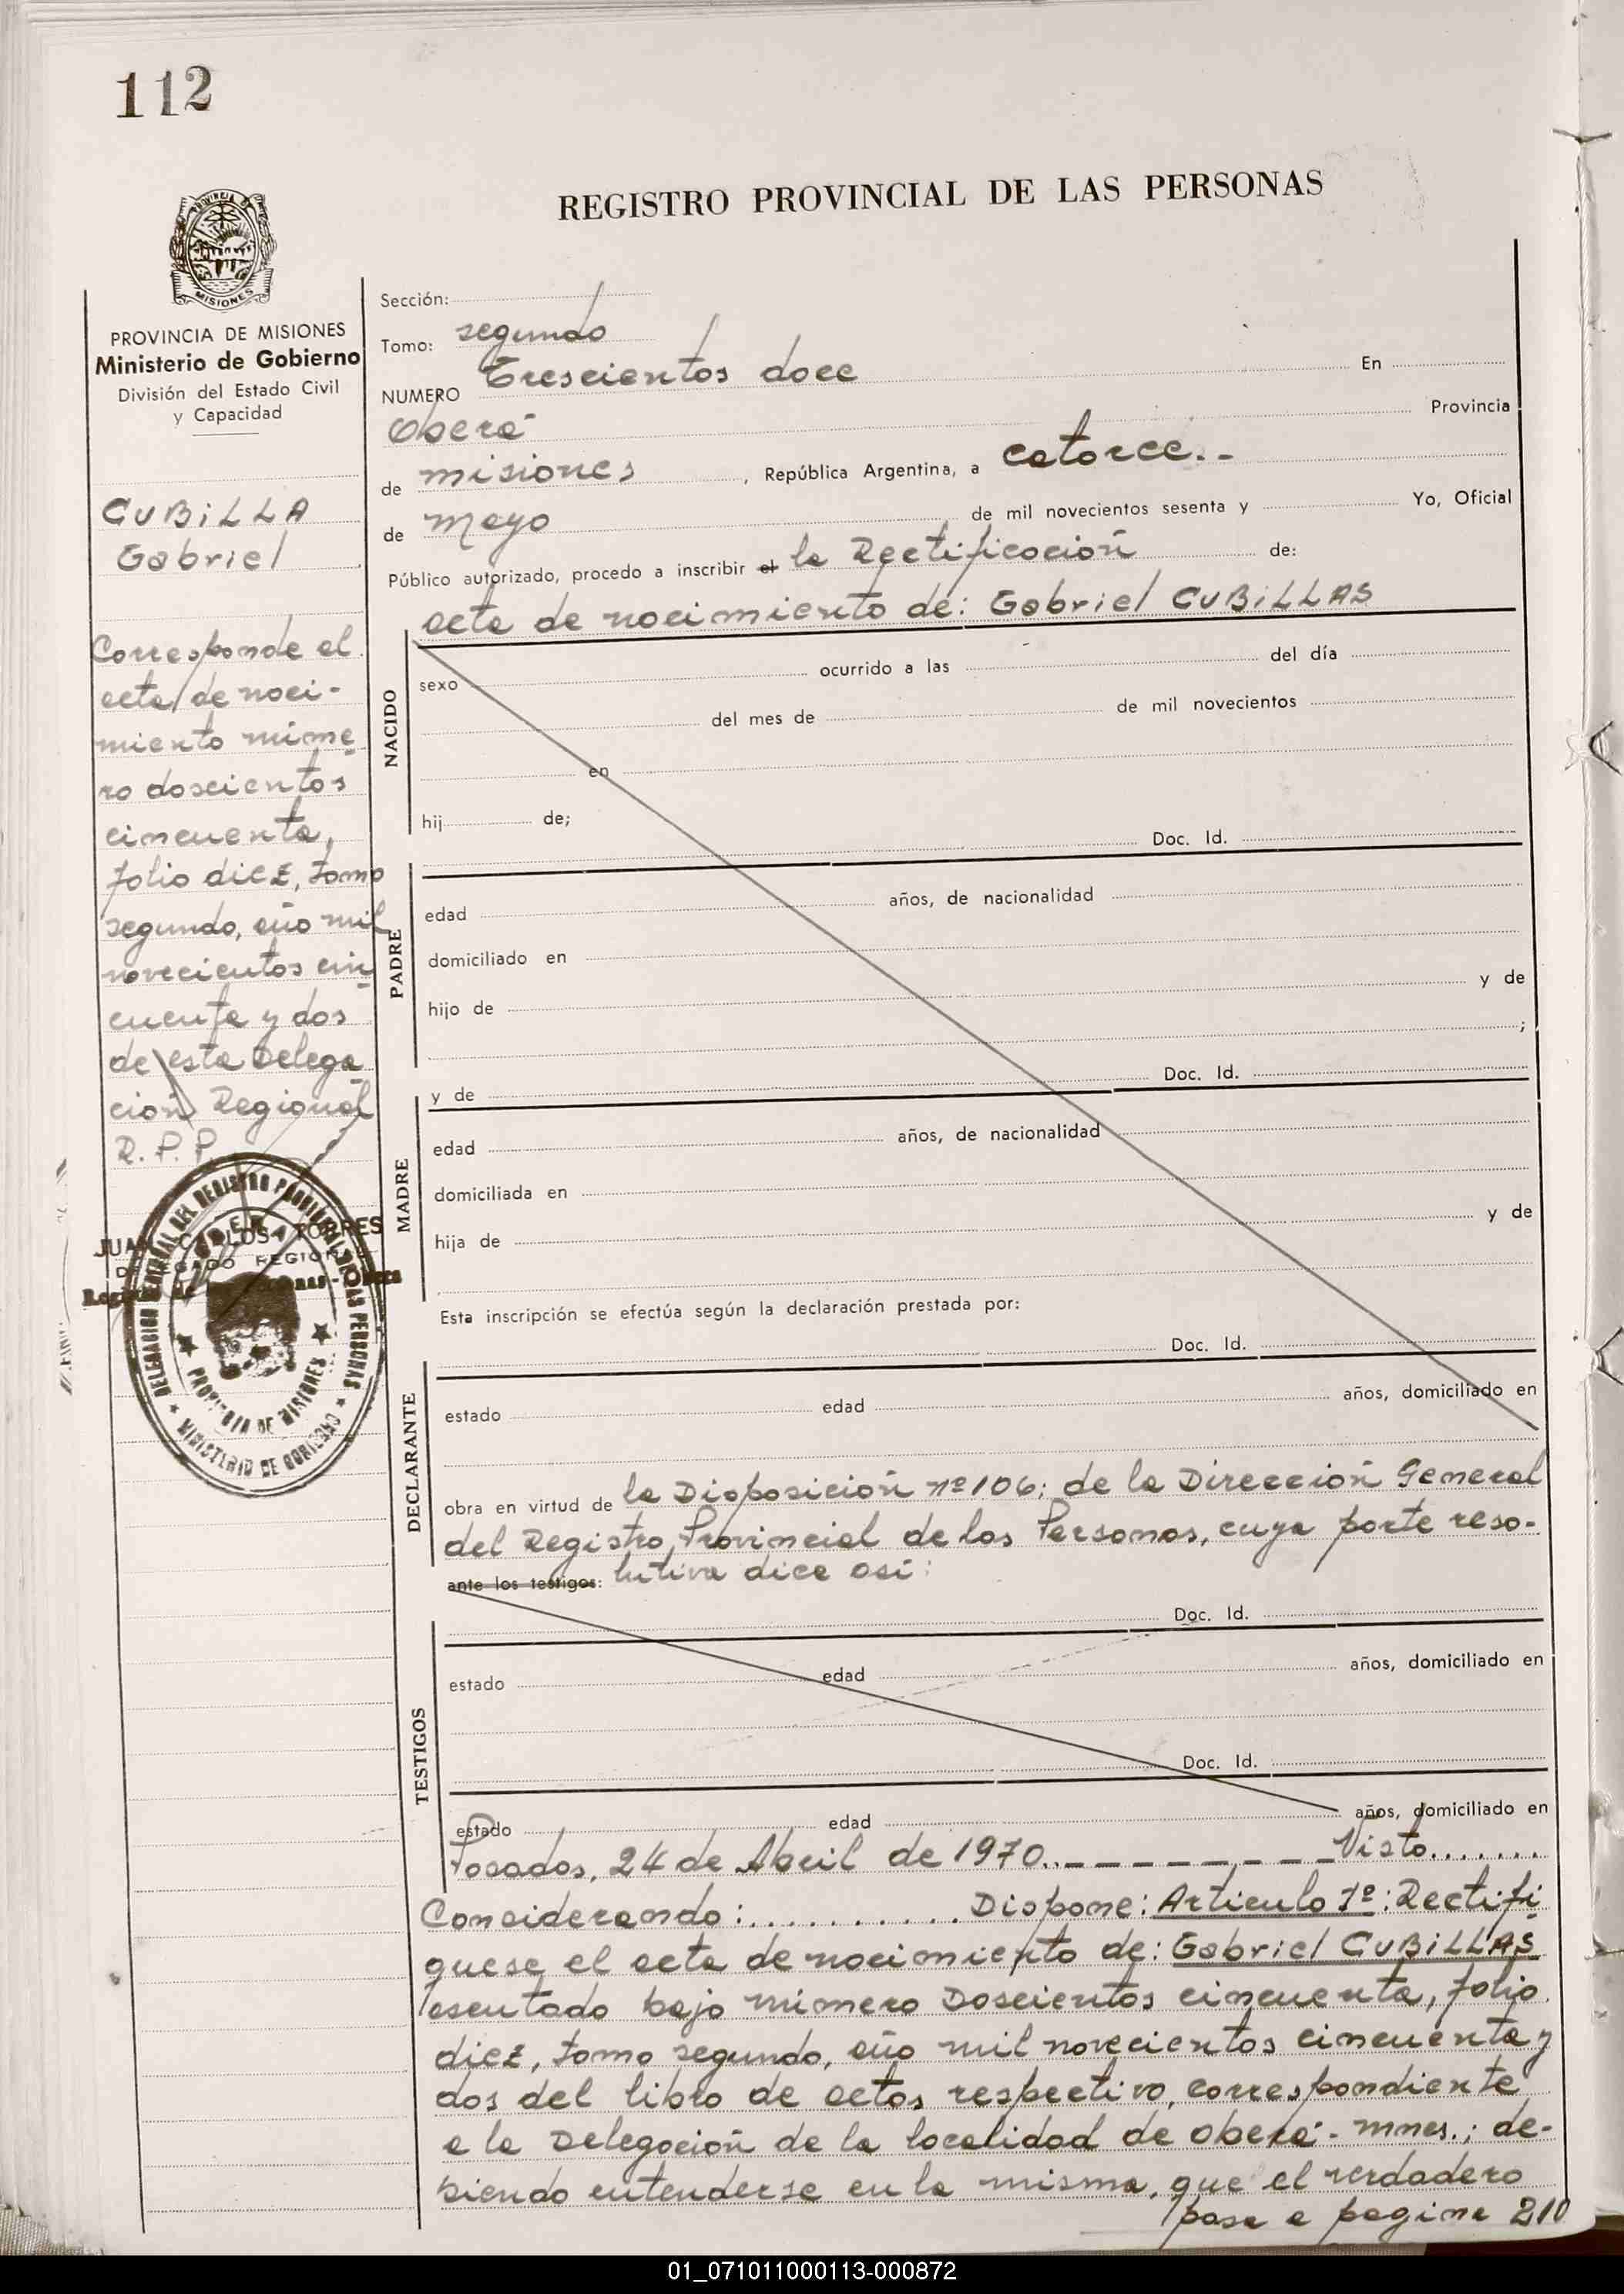 112
REGISTRO PROVINCIAL DE LAS PERSONAS
PROVINCIA DE MISIONES
Ministerio de Gobierno
División del Estado Civil
y Capacidad
CUBILLA
Gabriel
Corresponde al
acta de naci-
miento núme
ro doscientos
cincuenta,
folio diez, tomo
segundo, año mil
novecientos cin
cuenta y dos
de esta Delega
ción Regional
R. P. P.
JUAN CARLOS TORRES
DELEGADO REGIONAL
DELEGACION REGIONAL DEL REGISTRO PROVINCIAL DE LAS PERSONAS
OBERA
PROVINCIA DE MISIONES
MINISTERIO DE GOBIERNO
Sección:
Tomo: segundo
NUMERO Trescientos doce En
Oberá Provincia
de misiones, República Argentina, a catorce.-
de mayo de mil novecientos sesenta y Yo, Oficial
Público autorizado, procedo a inscribir el la Rectificación de:
acta de nacimiento de: Gabriel CUBILLAS
NACIDO
sexo ocurrido a las del día
del mes de de mil novecientos
en
hij de;
Doc. Id.
PADRE
edad años, de nacionalidad
domiciliado en
hijo de y de
;
y de Doc. Id.
MADRE
edad años, de nacionalidad
domiciliada en
hija de y de
Esta inscripción se efectúa según la declaración prestada por:
Doc. Id.
DECLARANTE
estado edad años, domiciliado en
obra en virtud de la Disposición nº 106; de la Dirección General
del Registro Provincial de las Personas, cuya parte reso-
ante los testigos: lutiva dice así:
Doc. Id.
TESTIGOS
estado edad años, domiciliado en
Doc. Id.
estado edad años, domiciliado en
Posadas, 24 de Abril de 1970.. - - - - - - - - Visto.......
Considerando:.......... Dispone: Artículo 1º: Rectifi
quese el acta de nacimiento de: Gabriel CUBILLAS
asentado bajo número Doscientos cincuenta, folio
diez, tomo segundo, año mil novecientos cincuenta y
dos del libro de actas respectivo, correspondiente
a la Delegación de la localidad de Oberá - mnes.; de-
biendo entenderse en la misma, que el verdadero
pasa a pagina 210
01_071011000113-000872